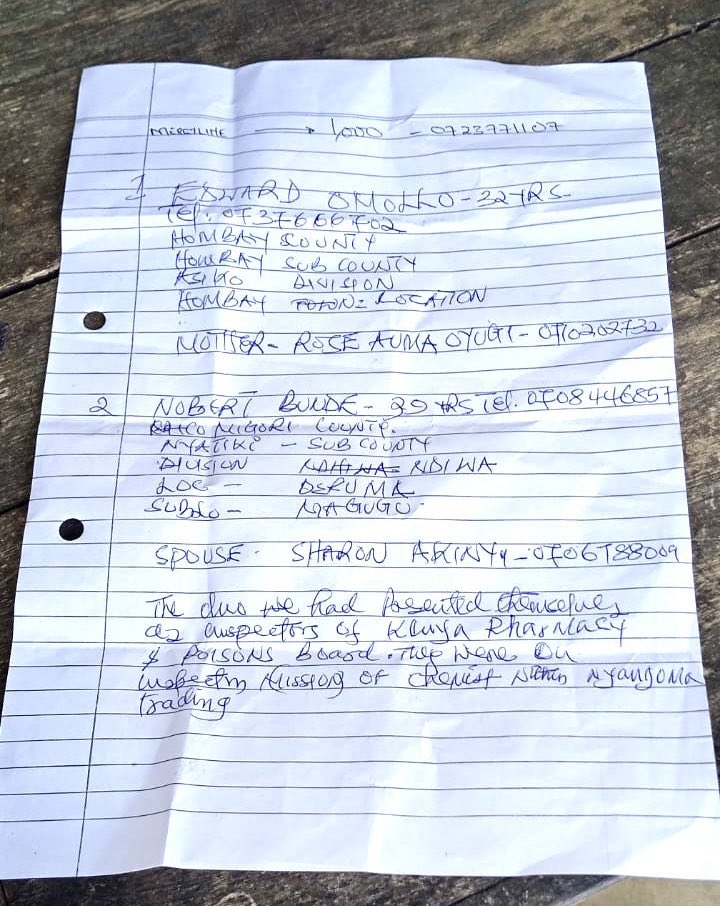 MERCYLINE → 1,000 - 0723771107
1 EDWARD OMOLLO - 32 YRS
Tel: 0737666702
HOMBAY COUNTY
HOMBAY SUB COUNTY
ASIKO DIVISION
HOMBAY LOCATION
MOTHER - ROSE AUMA OYUGI - 0710202732
2 NOBERT BUNDE - 29 YRS Tel. 0708446857
MIGORI COUNTY.
NYATIKE - SUB COUNTY
DIVISION NDIWA
LOC -
SUBLO - MAGUGU
SPOUSE - SHARON AKINYI - 0706788009
The duo we had Posented themselves
as inspectors of Kenya Pharmacy
& POISONS Board. They were on
inspectin Mission OF chemist within nyangoma
trading